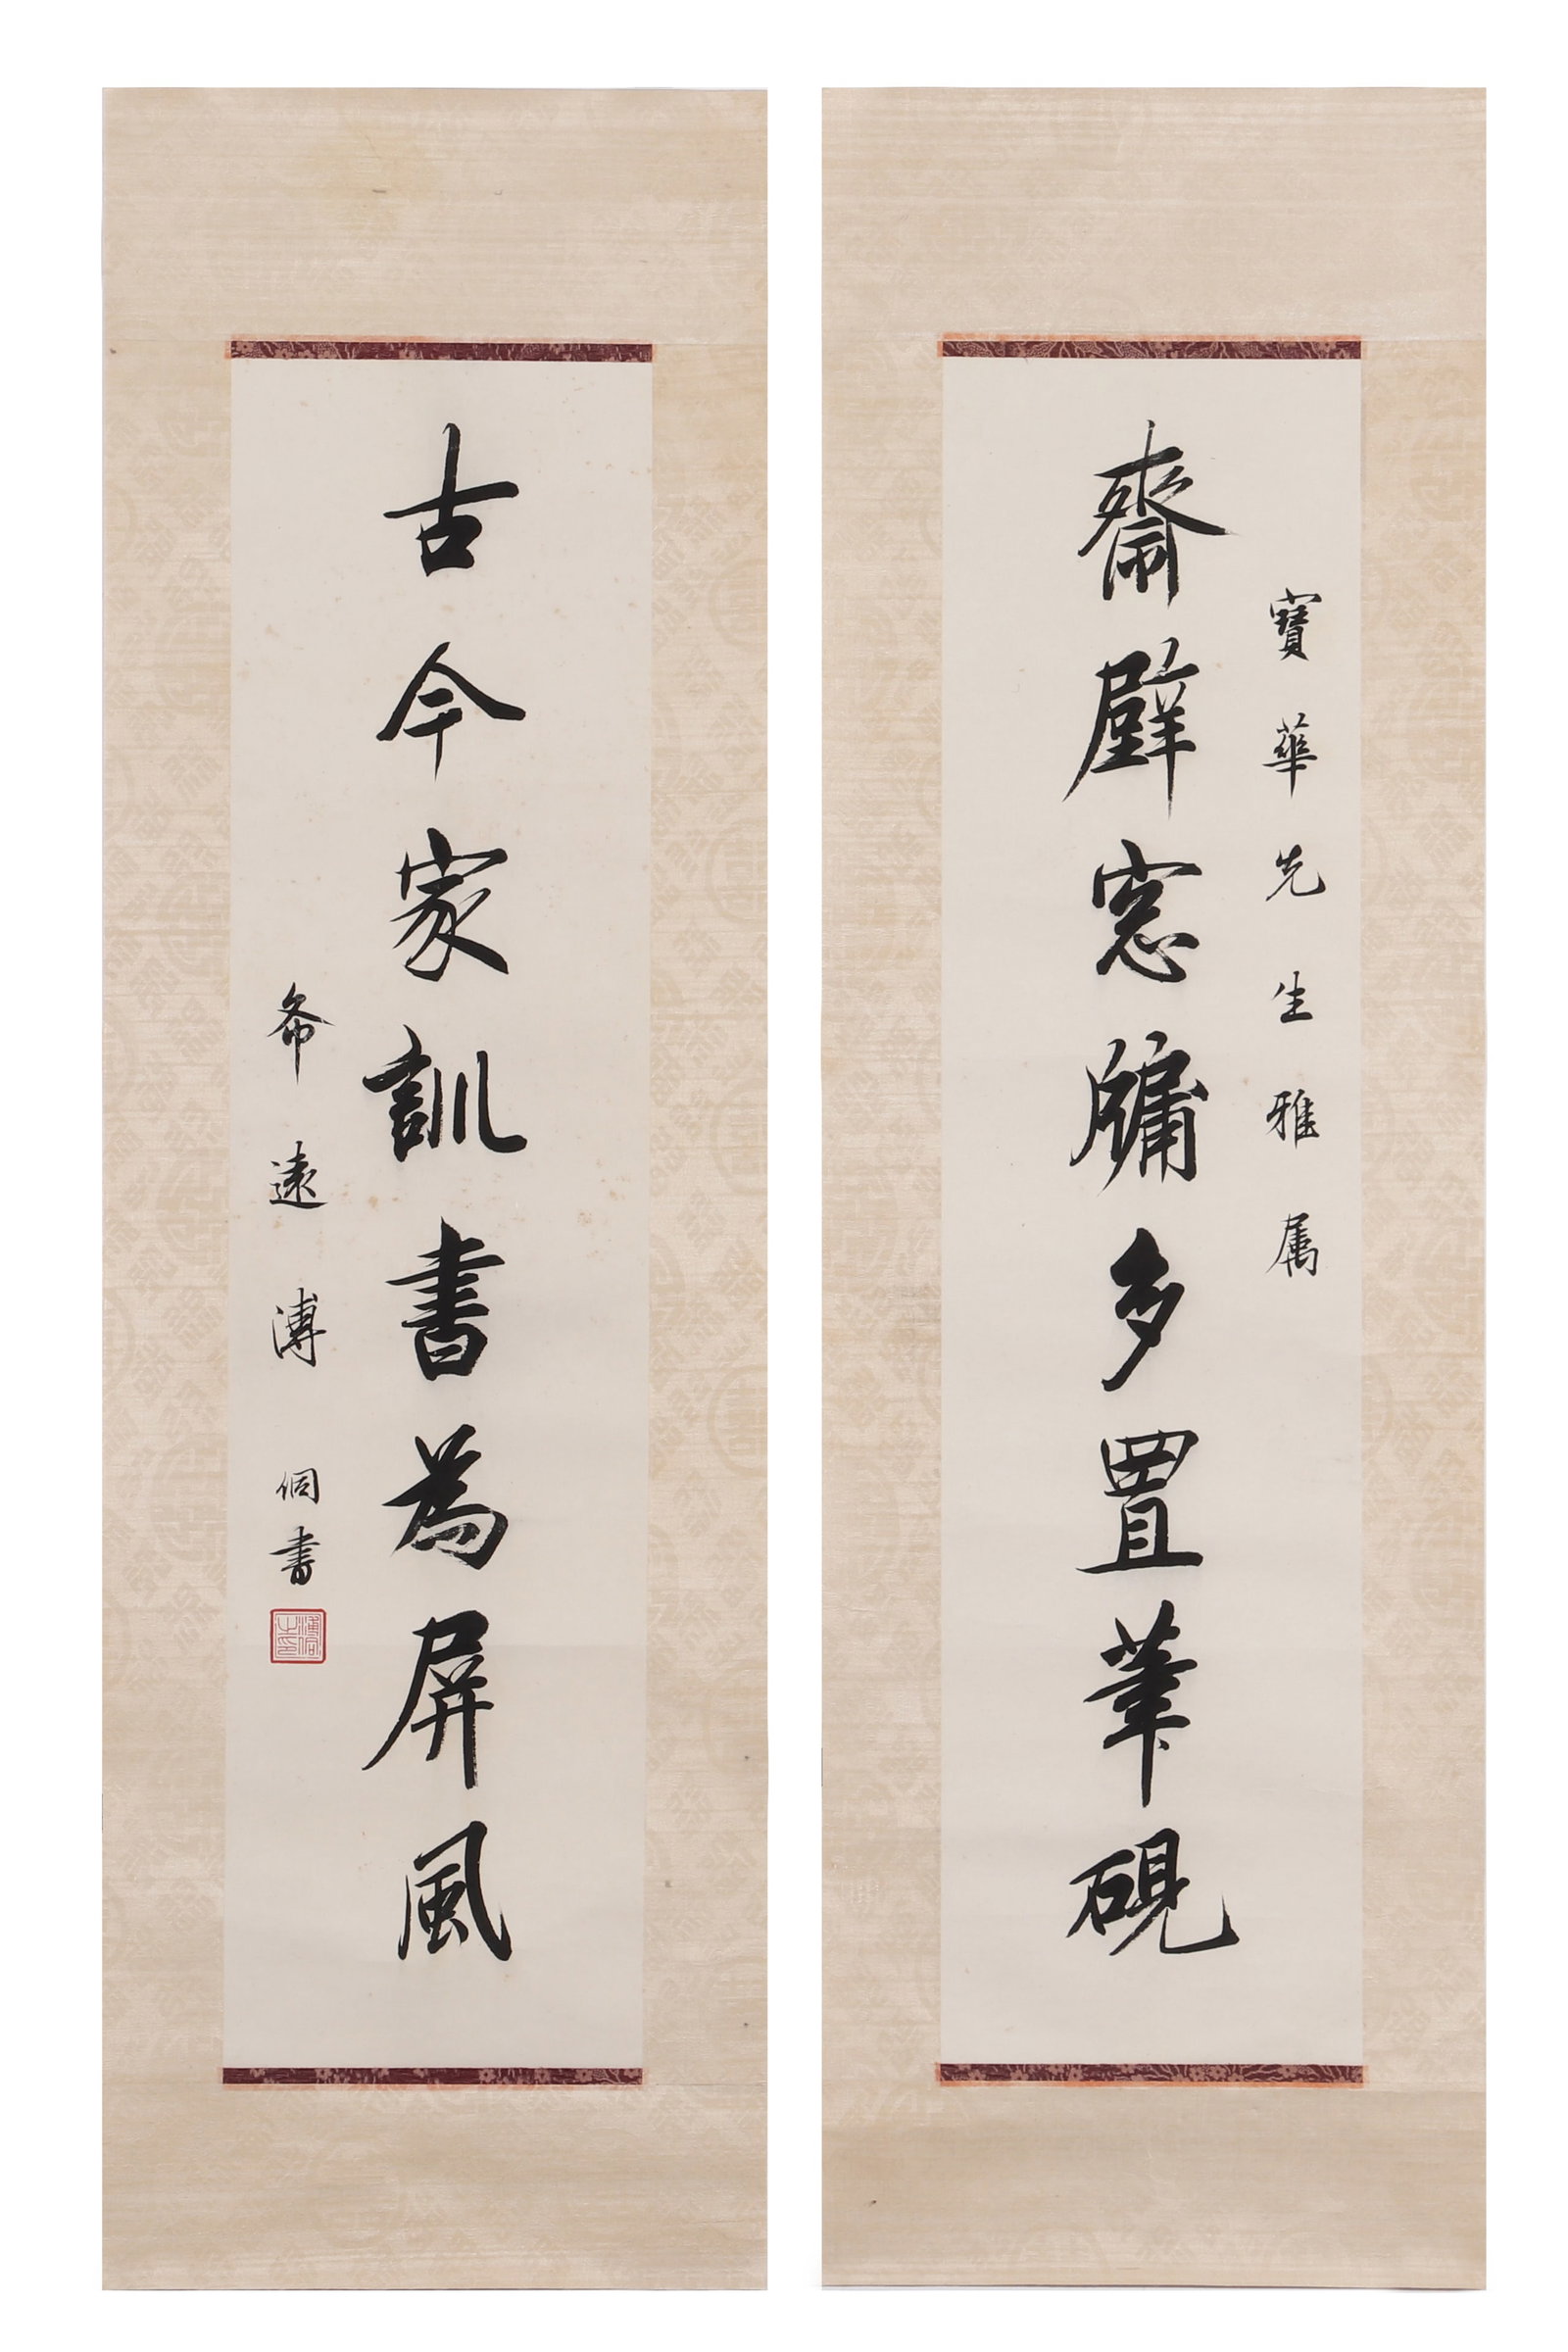 寶華先生雅属
齋壁窓牖多置筆硯
古今家訓書為屏風
希遠溥侗書
溥侗之印